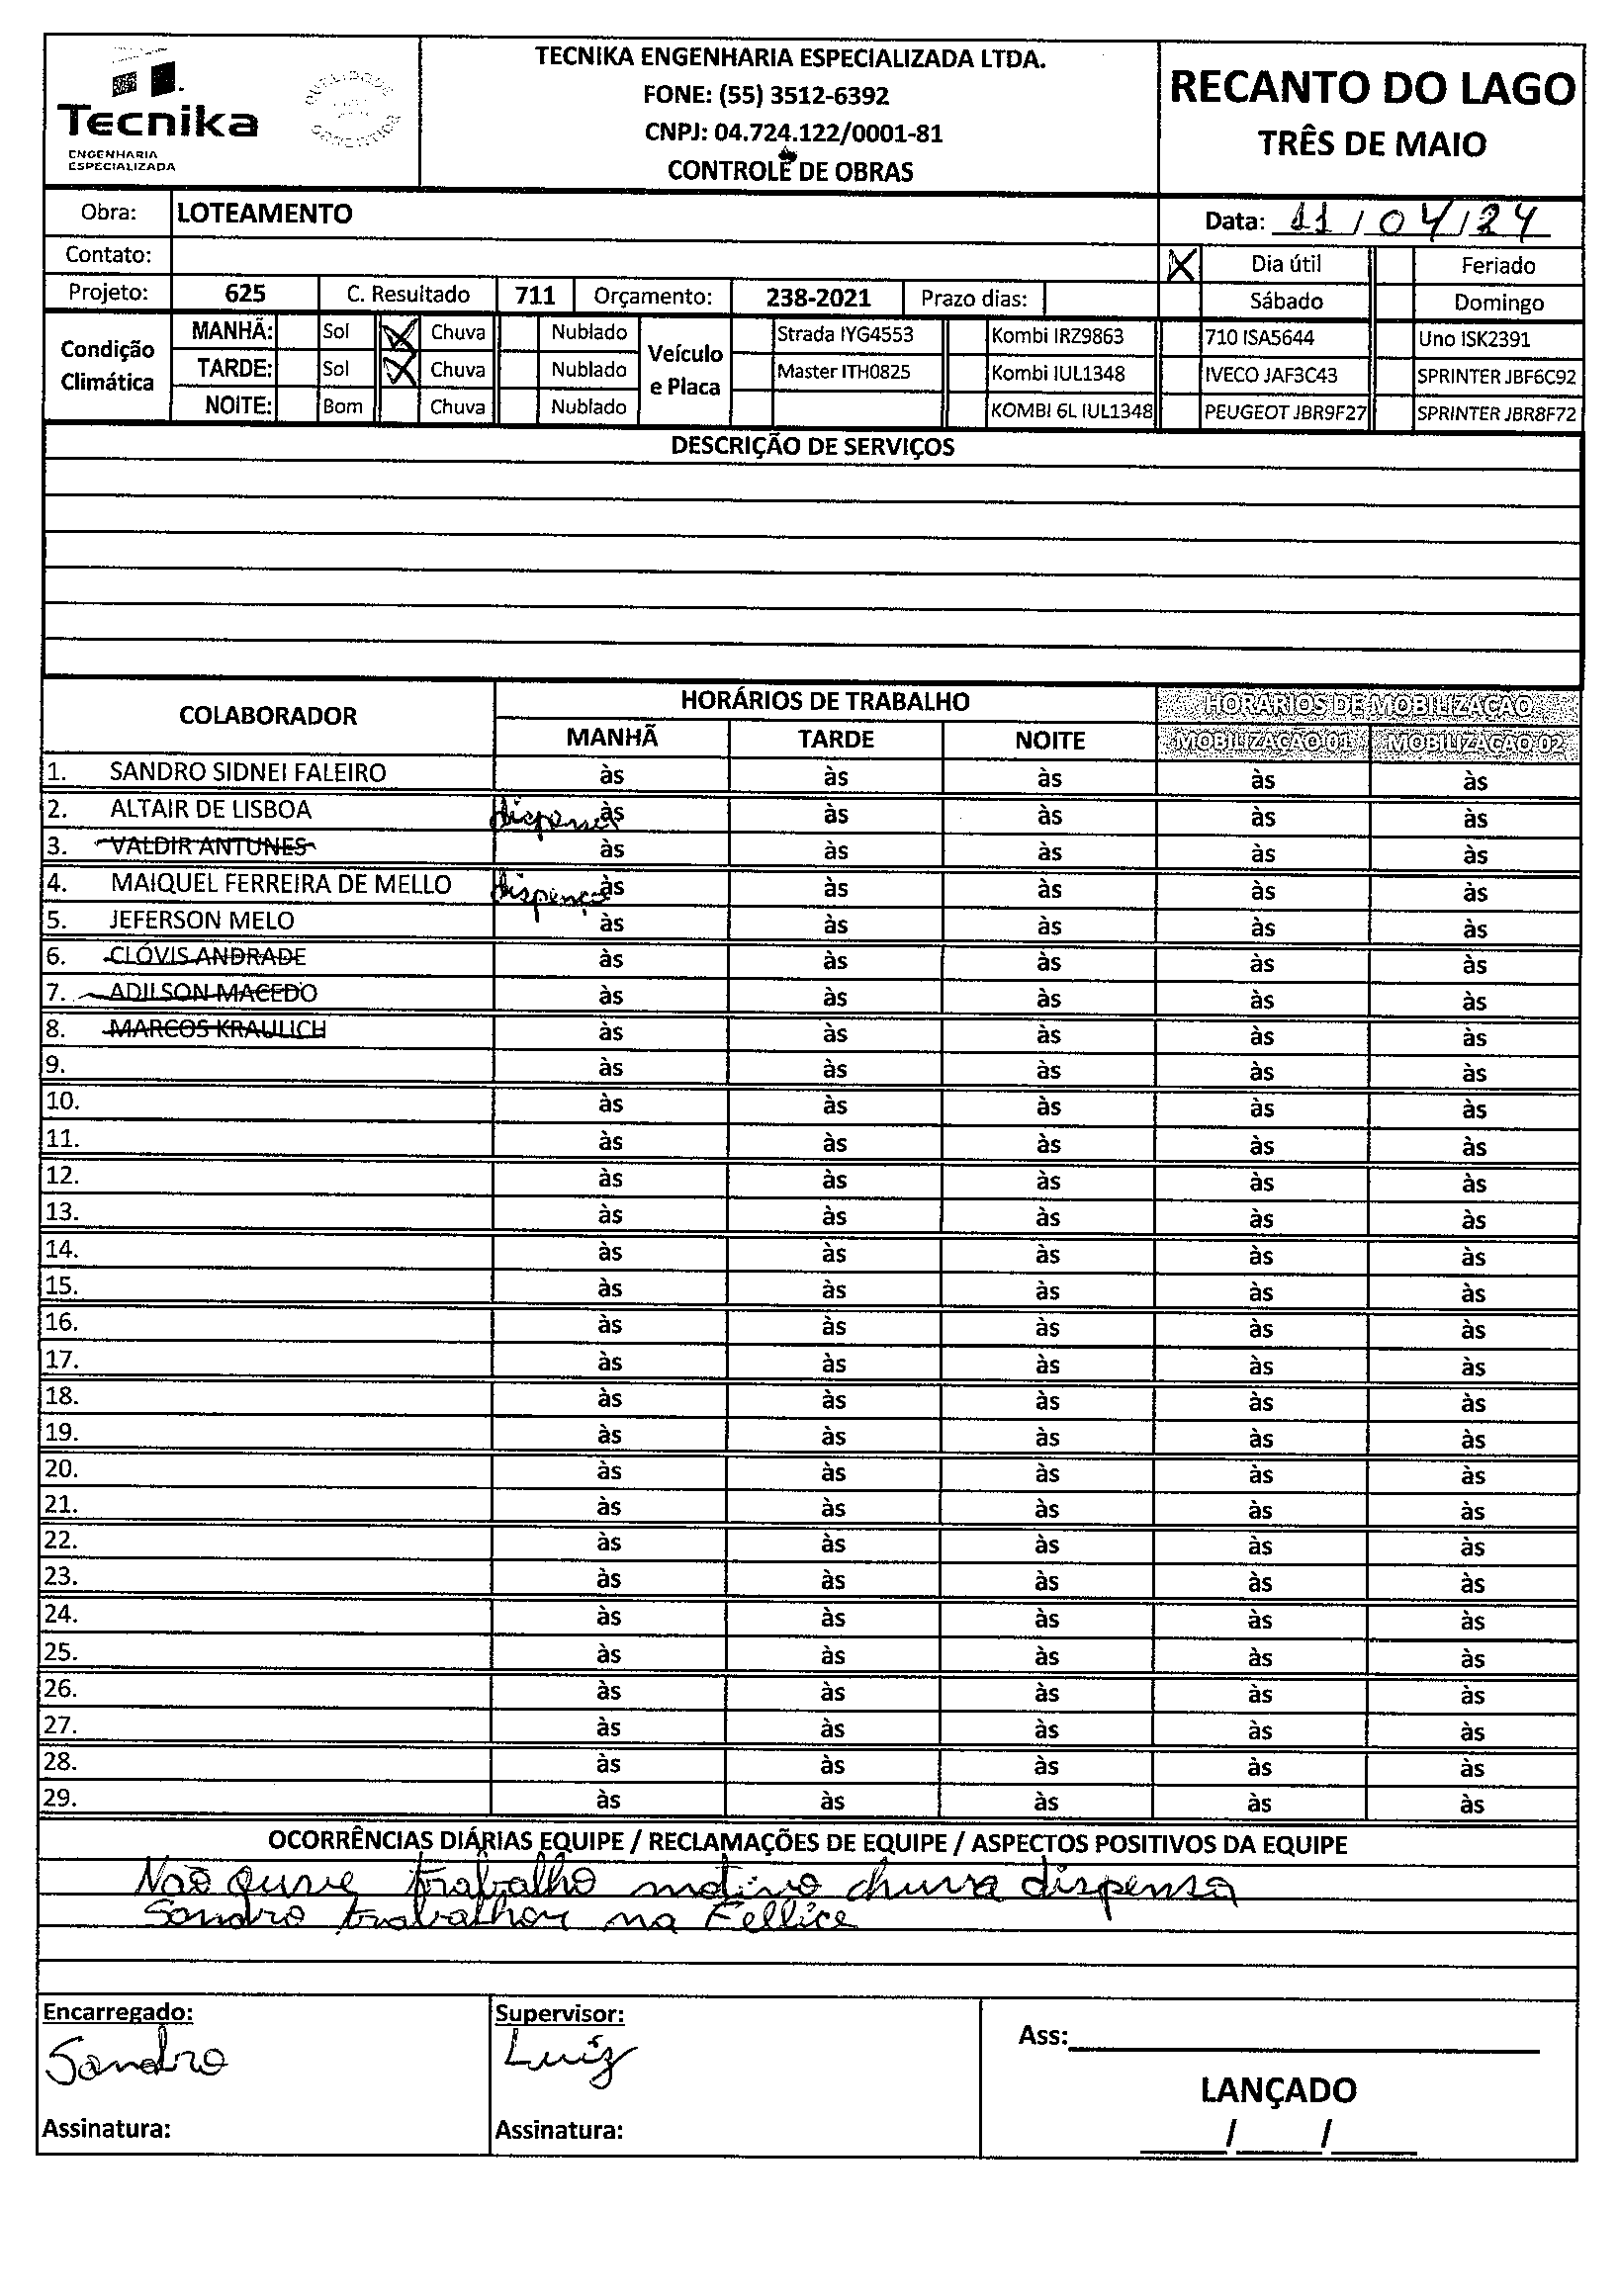 Tecnika
ENGENHARIA
ESPECIALIZADA
TECNIKA ENGENHARIA ESPECIALIZADA LTDA.
FONE: (55) 3512-6392
CNPJ: 04.724.122/0001-81
CONTROLE DE OBRAS
RECANTO DO LAGO
TRÊS DE MAIO
Obra: LOTEAMENTO
Data: 11/04/24
Contato:
Dia útil Feriado
Projeto: 625 C. Resultado 711 Orçamento: 238-2021 Prazo dias: Sábado Domingo
Condição Climática
MANHÃ: Sol X Chuva Nublado
TARDE: Sol X Chuva Nublado
NOITE: Bom Chuva Nublado
Veículo e Placa
Strada IYG4553 Kombi IRZ9863 710 ISA5644 Uno ISK2391
Master ITH0825 Kombi IUL1348 IVECO JAF3C43 SPRINTER JBF6C92
KOMBI 6L IUL1348 PEUGEOT JBR9F27 SPRINTER JBR8F72
DESCRIÇÃO DE SERVIÇOS
COLABORADOR HORÁRIOS DE TRABALHO HORÁRIOS DE MOBILIZAÇÃO
MANHÃ TARDE NOITE MOBILIZAÇÃO 01 MOBILIZAÇÃO 02
1. SANDRO SIDNEI FALEIRO às às às às às
2. ALTAIR DE LISBOA às às às às às
3. VALDIR ANTUNES às às às às às
4. MAIQUEL FERREIRA DE MELLO dispença às às às às às
5. JEFERSON MELO às às às às às
6. CLÓVIS ANDRADE às às às às às
7. ADILSON MACEDO às às às às às
8. MARCOS KRAULICH às às às às às
9. às às às às às
10. às às às às às
11. às às às às às
12. às às às às às
13. às às às às às
14. às às às às às
15. às às às às às
16. às às às às às
17. às às às às às
18. às às às às às
19. às às às às às
20. às às às às às
21. às às às às às
22. às às às às às
23. às às às às às
24. às às às às às
25. às às às às às
26. às às às às às
27. às às às às às
28. às às às às às
29. às às às às às
OCORRÊNCIAS DIÁRIAS EQUIPE / RECLAMAÇÕES DE EQUIPE / ASPECTOS POSITIVOS DA EQUIPE
Não ouve trabalho motivo chuva dispensa
Sandro trabalhou na Fellice
Encarregado: Supervisor:
Sandro Luiz
Ass:
LANÇADO
Assinatura: Assinatura:
___/___/___